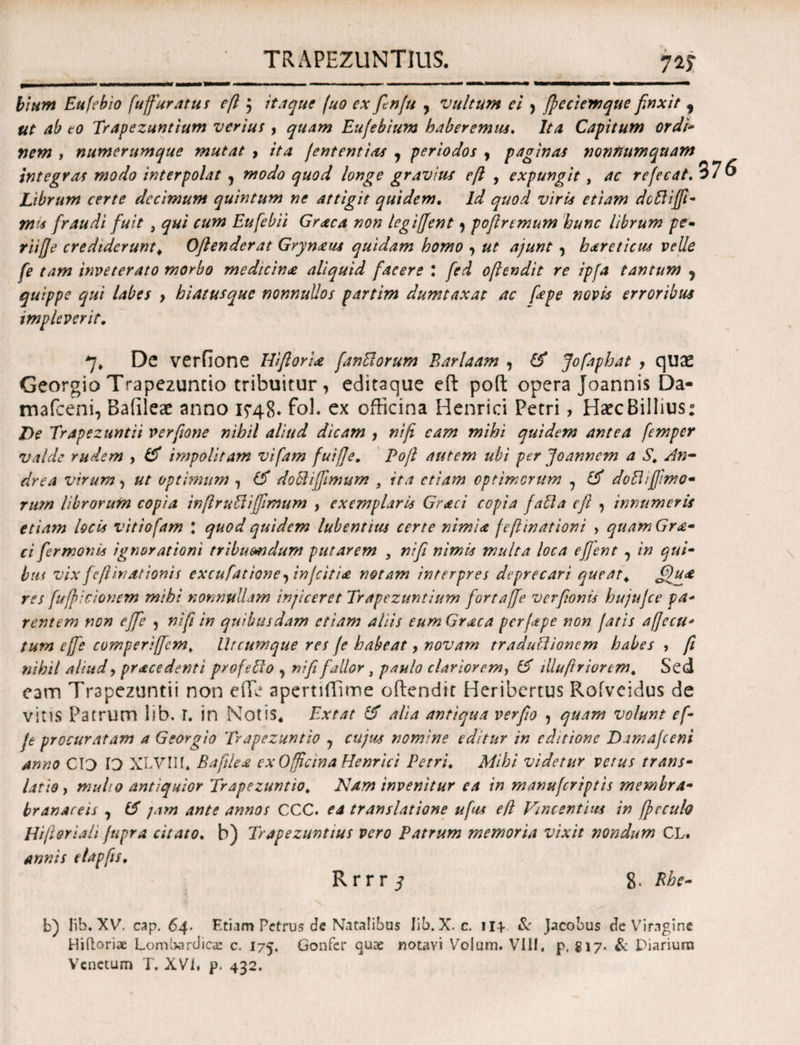 TRAPEZUNTIUS. 725
bium Eusebio suffuratus est ; itaque suo ex sensu , vultum ei , speciemque finxit ,
ut ab eo Trapezuntium verius , quam Eusebium haberemus. Ita Capitum ordi-
nem , numerumque mutat , ita sententias , periodos , paginas nonnumquam
integras modo interpolat , modo quod longe gravius est , expungit , ac resecat. 376
Librum certe decimum quintum ne attigit quidem. Id quod viris etiam doctissi-
mis fraudi fuit , qui cum Eusebii Græca non legissent , postremum hunc librum pe-
riisse crediderunt. Ostenderat Grynæus quidam homo , ut ajunt , hæreticus velle
se tam inveterato morbo medicinæ aliquid facere : sed ostendit re ipsa tantum ,
quippe qui labes , hiatusque nonnullos partim dumtaxat ac sæpe novis erroribus
impleverit.
7. De versione Historiæ sanctorum Barlaam , & Josaphat , quæ
Georgio Trapezuntio tribuitur, editaque est post opera Joannis Da-
masceni, Basileæ anno 1548. fol. ex officina Henrici Petri , Hæc Billius:
De Trapezuntii versione nihil aliud dicam , nisi eam mihi quidem antea semper
valde rudem , & impolitam visam fuisse. Post autem ubi per Joannem a S. An-
drea virum , ut optimum , & doctissimum , ita etiam optimorum , & doctissimo-
rum librorum copia instructissimum , exemplaris Græci copia facta est , innumeris
etiam locis vitiosam : quod quidem lubentius certe nimiæ festinationi , quam Græ-
ci sermonis ignorationi tribuendum putarem , nisi nimis multa loca essent , in qui-
bus vix festinationis excusatione, inscitiæ notam interpres deprecari queat. Quæ
res suspicionem mihi nonnullam injiceret Trapezuntium fortasse versionis hujusce pa-
rentem non esse , nisi in quibusdam etiam aliis eum Græca persæpe non satis assecu-
tum esse comperissem. Utcumque res se habeat , novam traductionem habes , si
nihil aliud, præcedenti profecto , nisi fallor , paulo clariorem, & illustriorem. Sed
eam Trapezuntii non esse apertissime ostendit Heribertus Rosveidus de
vitis Patrum lib. I. in Notis. Extat & alia antiqua versio , quam volunt es-
se procuratam a Georgio Trapezuntio , cujus nomine editur in editione Damasceni
anno CIƆ IƆ XLVIII. Basileæ ex Officina Henrici Petri. Mihi videtur vetus trans-
latio , multo antiquior Trapezuntio. Nam invenitur ea in manuscriptis membra-
branaceis , & jam ante annos CCC. ea translatione usus est Vincentius in speculo
Historiali supra citato. b) Trapezuntius vero Patrum memoria vixit nondum CL.
annis elapsis.
Rrrr 3 8. Rhe-
b) lib. XV. cap. 64. Etiam Petrus de Natalibus lib. X. c. 114. & Jacobus de Viragine
Historiæ Lombardicæ c. 175. Gonfer quæ notavi Volum. VIII. p. 817. & Diarium
Venetum T. XVI. p. 432.